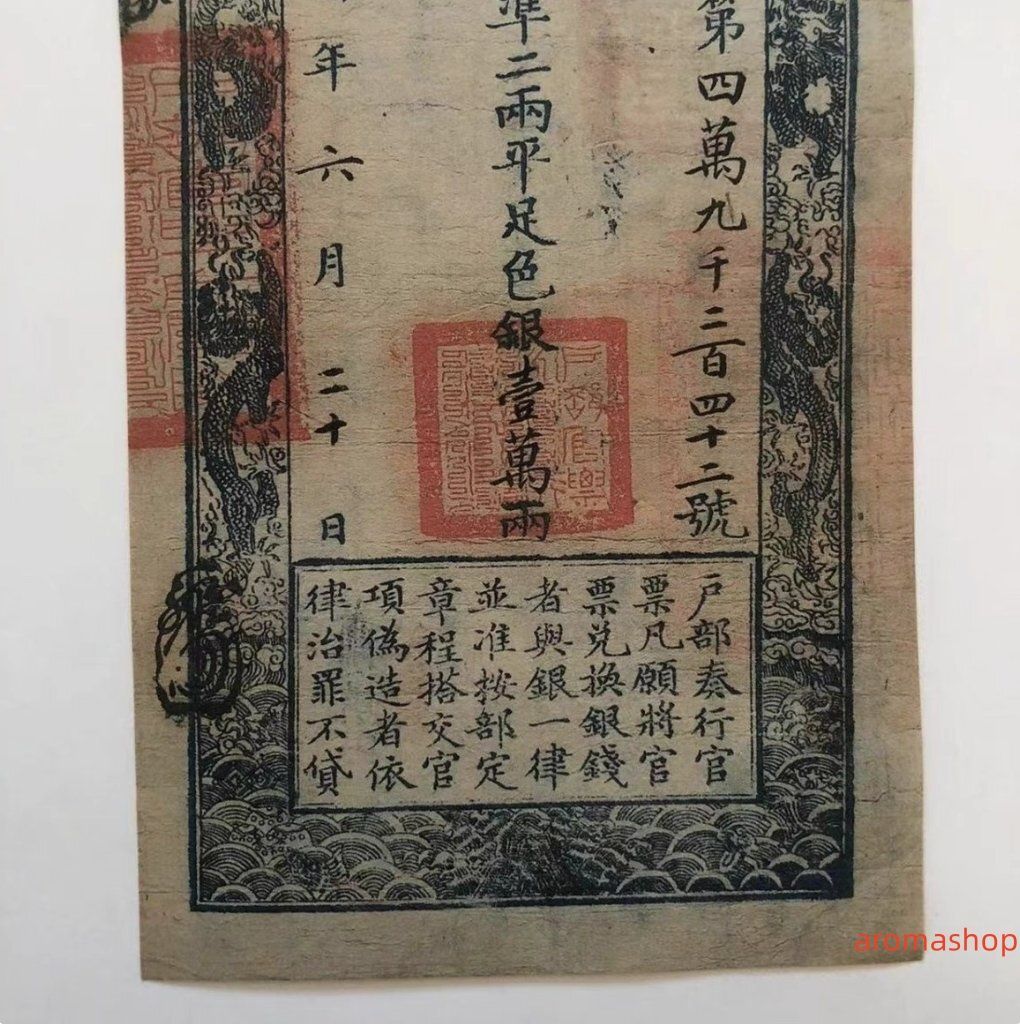 第四萬九千二百四十二號
準二兩平足色銀壹萬兩
年六月二十日
戶部奏行官
票凡願將官
票兌換銀錢
者與銀一律
並准按部定
章程搭交官
項偽造者依
律治罪不貸
aromashop